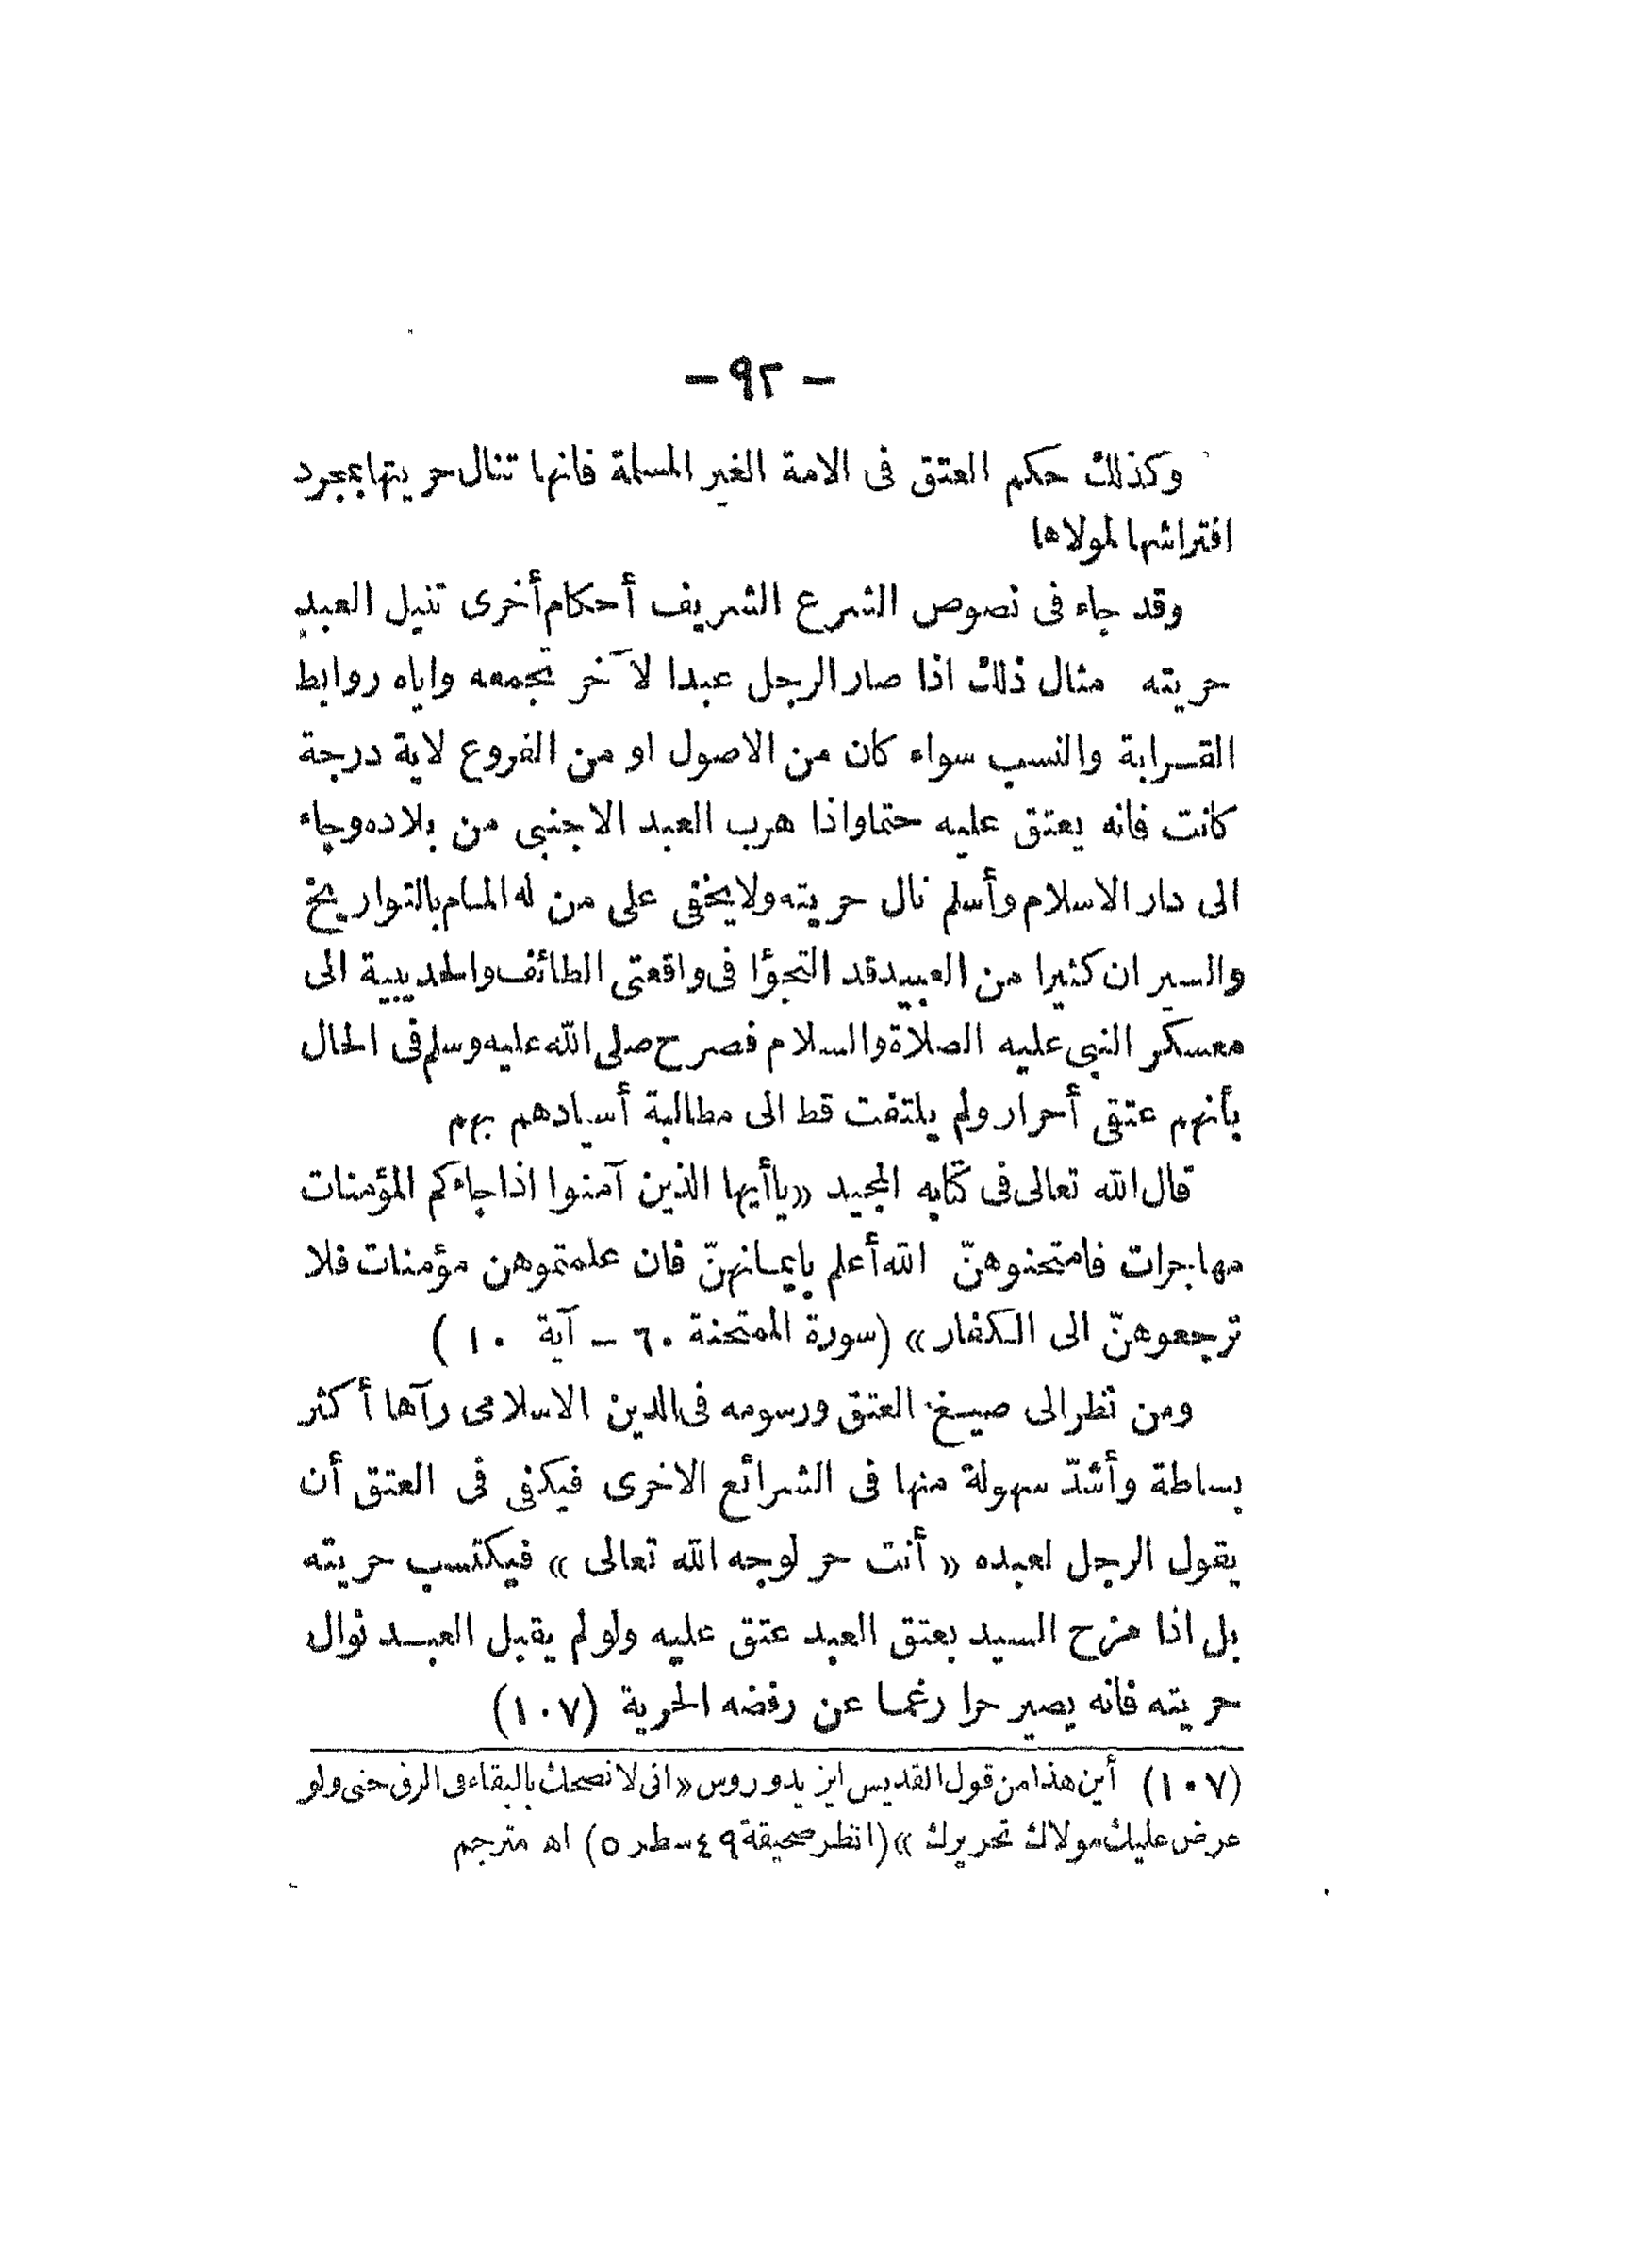 — ٩٢ —
وكذلك حكم العتق فى الامة الغير المسلمة فانها تنال حريتها بمجرد
افتراشها لمولاها
وقد جاء فى نصوص الشرع الشريف أحكام أخرى تنيل العبد
حريته مثال ذلك اذا صار الرجل عبدا لآخر تجمعه واياه روابط
القرابة والنسب سواء كان من الاصول او من الفروع لاية درجة
كانت فانه يعتق عليه حتما واذا هرب العبد الاجنبى من بلاده وجاء
الى دار الاسلام وأسلم نال حريته ولا يخفى على من له المام بالتواريخ
والسير ان كثيرا من العبيد قد التجؤا فى واقعتى الطائف والحديبية الى
معسكر النبى عليه الصلاة والسلام فصرح صلى الله عليه وسلم فى الحال
بأنهم عتقى أحرار ولم يلتفت قط الى مطالبة أسيادهم بهم
قال الله تعالى فى كتابه المجيد «يا أيها الذين آمنوا اذا جاءكم المؤمنات
مهاجرات فامتحنوهنّ الله أعلم بايمانهنّ فان علمتموهن مؤمنات فلا
ترجعوهنّ الى الكفار» (سورة الممتحنة ٦٠ — آية ١٠)
ومن نظر الى صيغ العتق ورسومه فى الدين الاسلامى رآها أكثر
بساطة وأشدّ سهولة منها فى الشرائع الاخرى فيكفى فى العتق أن
يقول الرجل لعبده «أنت حر لوجه الله تعالى» فيكتسب حريته
بل اذا مزح السيد بعتق العبد عتق عليه ولو لم يقبل العبد نوال
حريته فانه يصير حرا رغما عن رفضه الحرية (١٠٧)
(١٠٧) أين هذا من قول القديس ايزيدوروس «انى لا نصحك بالبقاء فى الرق حتى ولو
عرض عليك مولاك تحريرك» (انظر صحيفة ٤٩ سطر ٥) اه مترجم